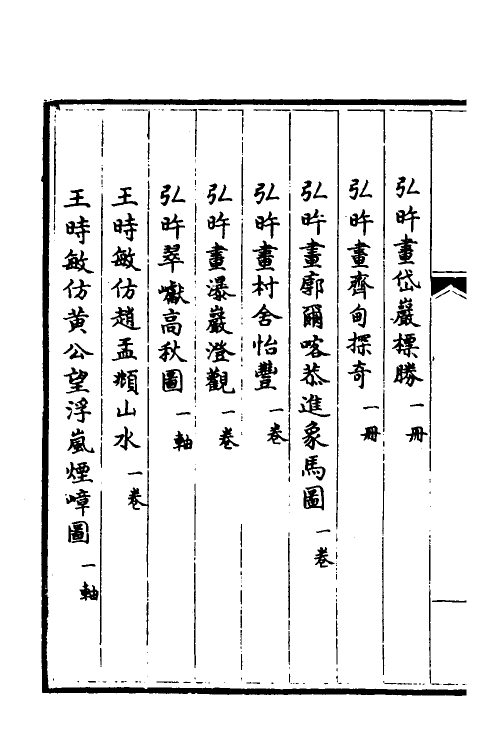 弘旿畫岱巖標勝一冊
弘旿畫齊甸探奇一冊
弘旿畫廓爾喀恭進象馬圖一卷
弘旿畫村舍怡豐一卷
弘旿畫瀑巖澄觀一卷
弘旿翠巘高秋圖一軸
王時敏仿趙孟頫山水一卷
王時敏仿黃公望浮嵐煙嶂圖一軸